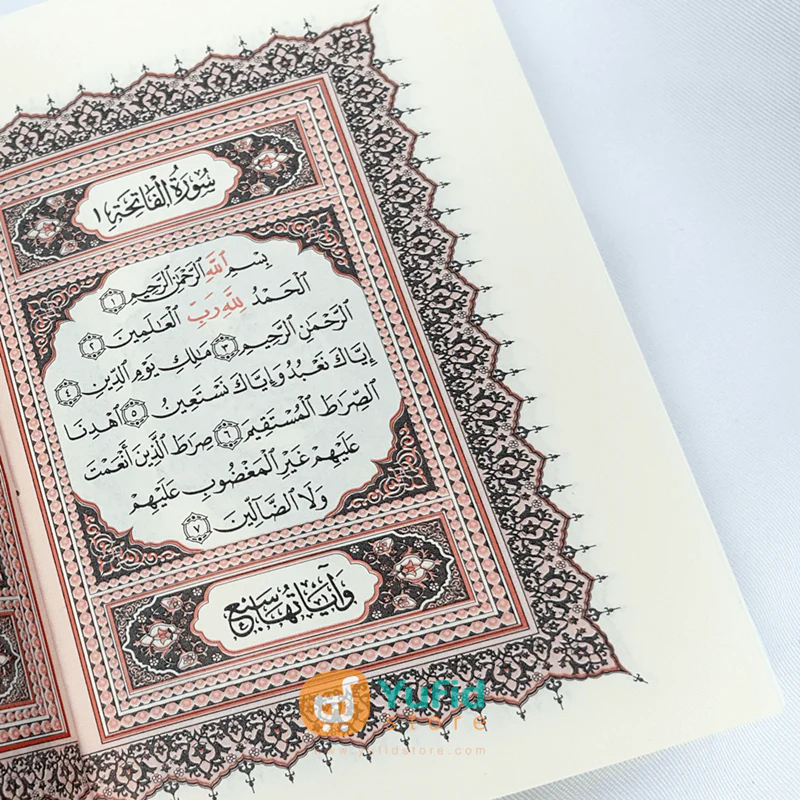 سُورَةُ الْفَاتِحَةِ ١
بِسْمِ ٱللَّهِ ٱلرَّحْمَٰنِ ٱلرَّحِيمِ ١
ٱلْحَمْدُ لِلَّهِ رَبِّ ٱلْعَٰلَمِينَ ٢
ٱلرَّحْمَٰنِ ٱلرَّحِيمِ ٣ مَٰلِكِ يَوْمِ ٱلدِّينِ ٤
إِيَّاكَ نَعْبُدُ وَإِيَّاكَ نَسْتَعِينُ ٥ ٱهْدِنَا
ٱلصِّرَٰطَ ٱلْمُسْتَقِيمَ ٦ صِرَٰطَ ٱلَّذِينَ أَنْعَمْتَ
عَلَيْهِمْ غَيْرِ ٱلْمَغْضُوبِ عَلَيْهِمْ
وَلَا ٱلضَّآلِّينَ ٧
وَآيَاتُهَا سَبْعٌ
Yufid
store
www.yufidstore.com